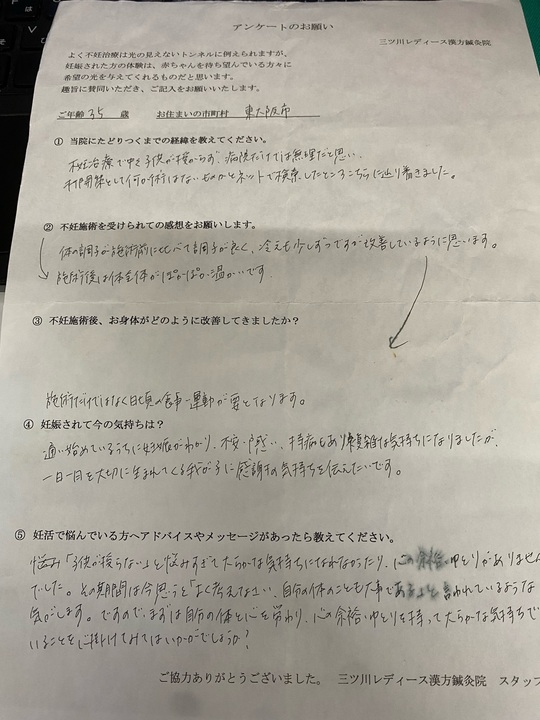 アンケートのお願い
三ツ川レディース漢方鍼灸院
よく不妊治療は光の見えないトンネルに例えられますが、
妊娠された方の体験は、赤ちゃんを待ち望んでいる方々に
希望の光を与えてくれるものだと思います。
趣旨に賛同いただき、ご記入をお願いいたします。
ご年齢 35 歳 お住まいの市町村 東大阪市
① 当院にたどりつくまでの経緯を教えてください。
不妊治療で中々子供が授からず、病院だけでは無理だと思い、
打開策として何か術はないものかとネットで検索したところこちらに辿り着きました。
② 不妊施術を受けられての感想をお願いします。
体の調子が施術前に比べて調子が良く、冷えも少しずつですが改善しているように思います。
施術後は体全体がぽかぽか温かいです。
③ 不妊施術後、お身体がどのように改善してきましたか?
施術だけではなく日頃の食事・運動が要となります。
④ 妊娠されて今の気持ちは?
通い始めているうちに妊娠がわかり、不安・戸惑い、持病もあり複雑な気持ちになりましたが、
一日一日を大切に生まれてくる我が子に感謝の気持ちを伝えたいです。
⑤ 妊活で悩んでいる方へアドバイスやメッセージがあったら教えてください。
悩み「子供が授らない」と悩みすぎて大らかな気持ちになれなかったり、心の余裕・ゆとりがありません
でした。その期間は今思うと「よく考えなさい、自分の体のことも大事であるよと言われているような
気がします。ですので、まずは自分の体と心を労わり、心の余裕・ゆとりを持って大らかな気持ちで
いることを心掛けてみてはいかがでしょうか?
ご協力ありがとうございました。 三ツ川レディース漢方鍼灸院 スタッフ